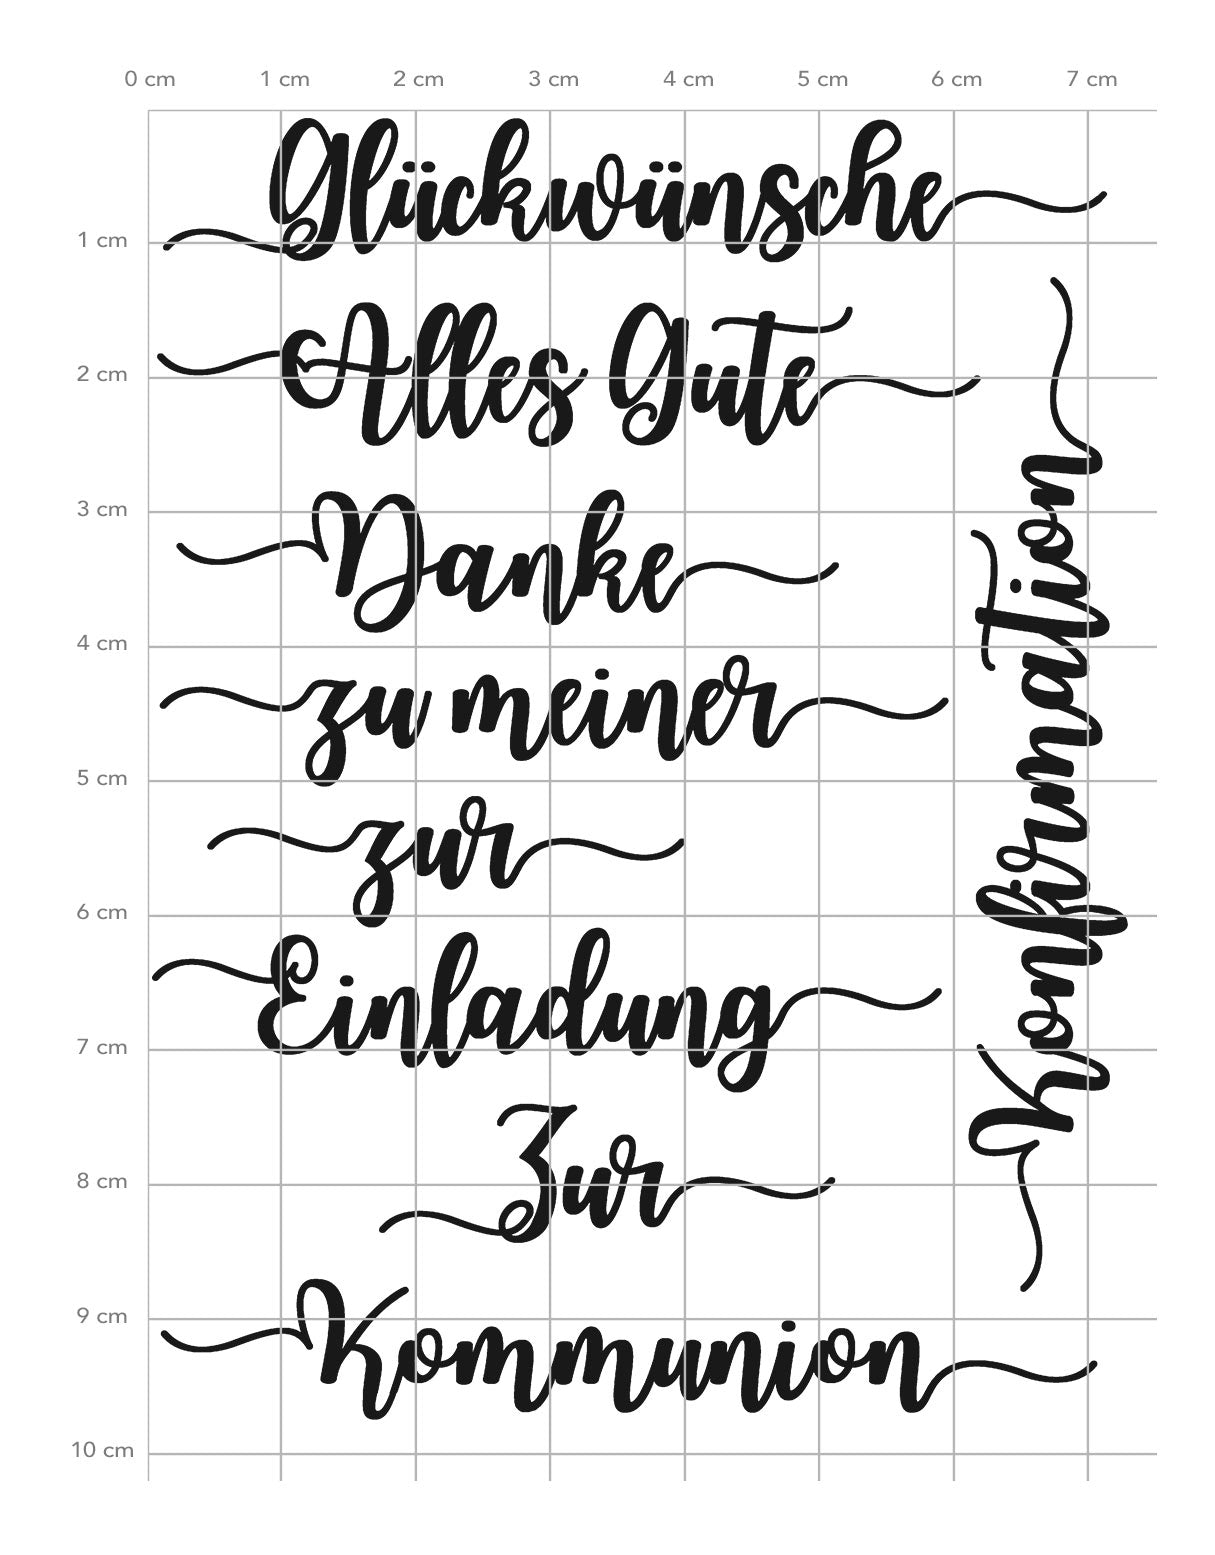 0 cm 1 cm 2 cm 3 cm 4 cm 5 cm 6 cm 7 cm
Glückwünsche
1 cm
Alles Gute
2 cm
Danke
3 cm
4 cm
zu meiner
5 cm
zur
6 cm
Einladung
7 cm
Zur
8 cm
9 cm
Kommunion
10 cm
Konfirmation